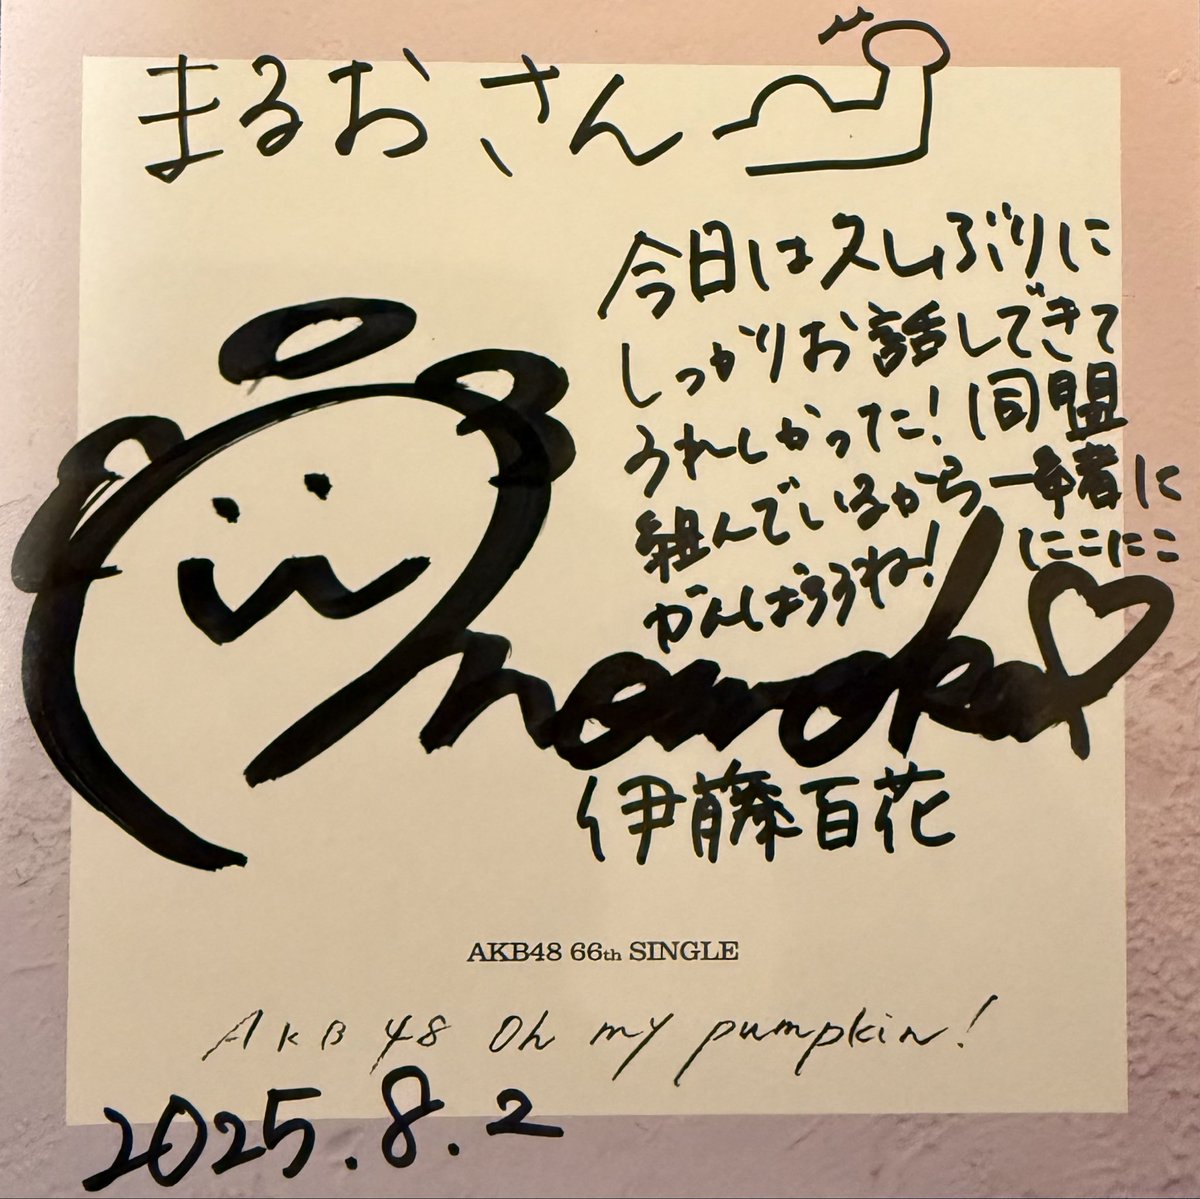 まるおさん
今日は久しぶりに
しっかりお話しできて
うれしかった！同盟
組んでいるから一緒に
にこにこ
がんばろうね！
Omomoka♡
伊藤百花
AKB48 66th SINGLE
AKB48 Oh my pumpkin!
2025.8.2